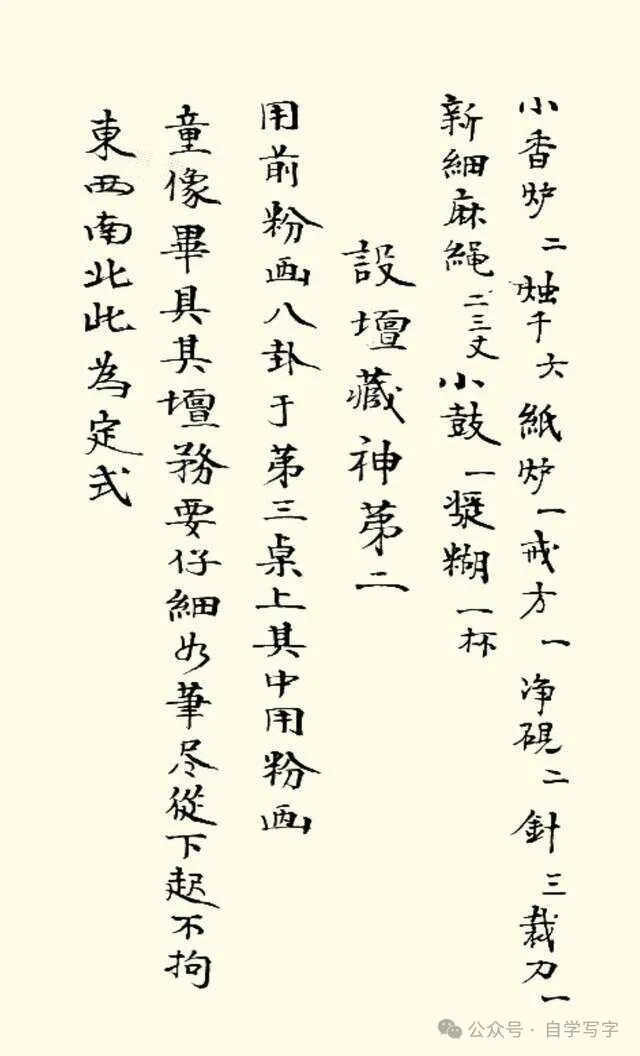 小香炉二烛千六紙炉一戒方一净硯二針三裁刀一
新細麻繩二三丈小鼓一漿糊一杯
設壇藏神第二
用前粉画八卦于第三桌上其中用粉画
童像畢具其壇務要仔細如筆尽從下起不拘
東西南北此為定式
公众号·自学写字